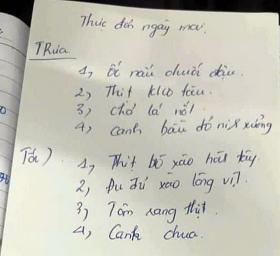 Thực đơn ngày mai.
Trưa.
1, Ốc nấu chuối đậu.
2, Thịt kho tàu.
3, chả lá nốt
4, canh bầu đồ xương
Tối)
1, Thịt bò xào hành tây.
2, Đu đủ xào lòng vịt.
3, Tôm rang thịt.
4, Canh chua.